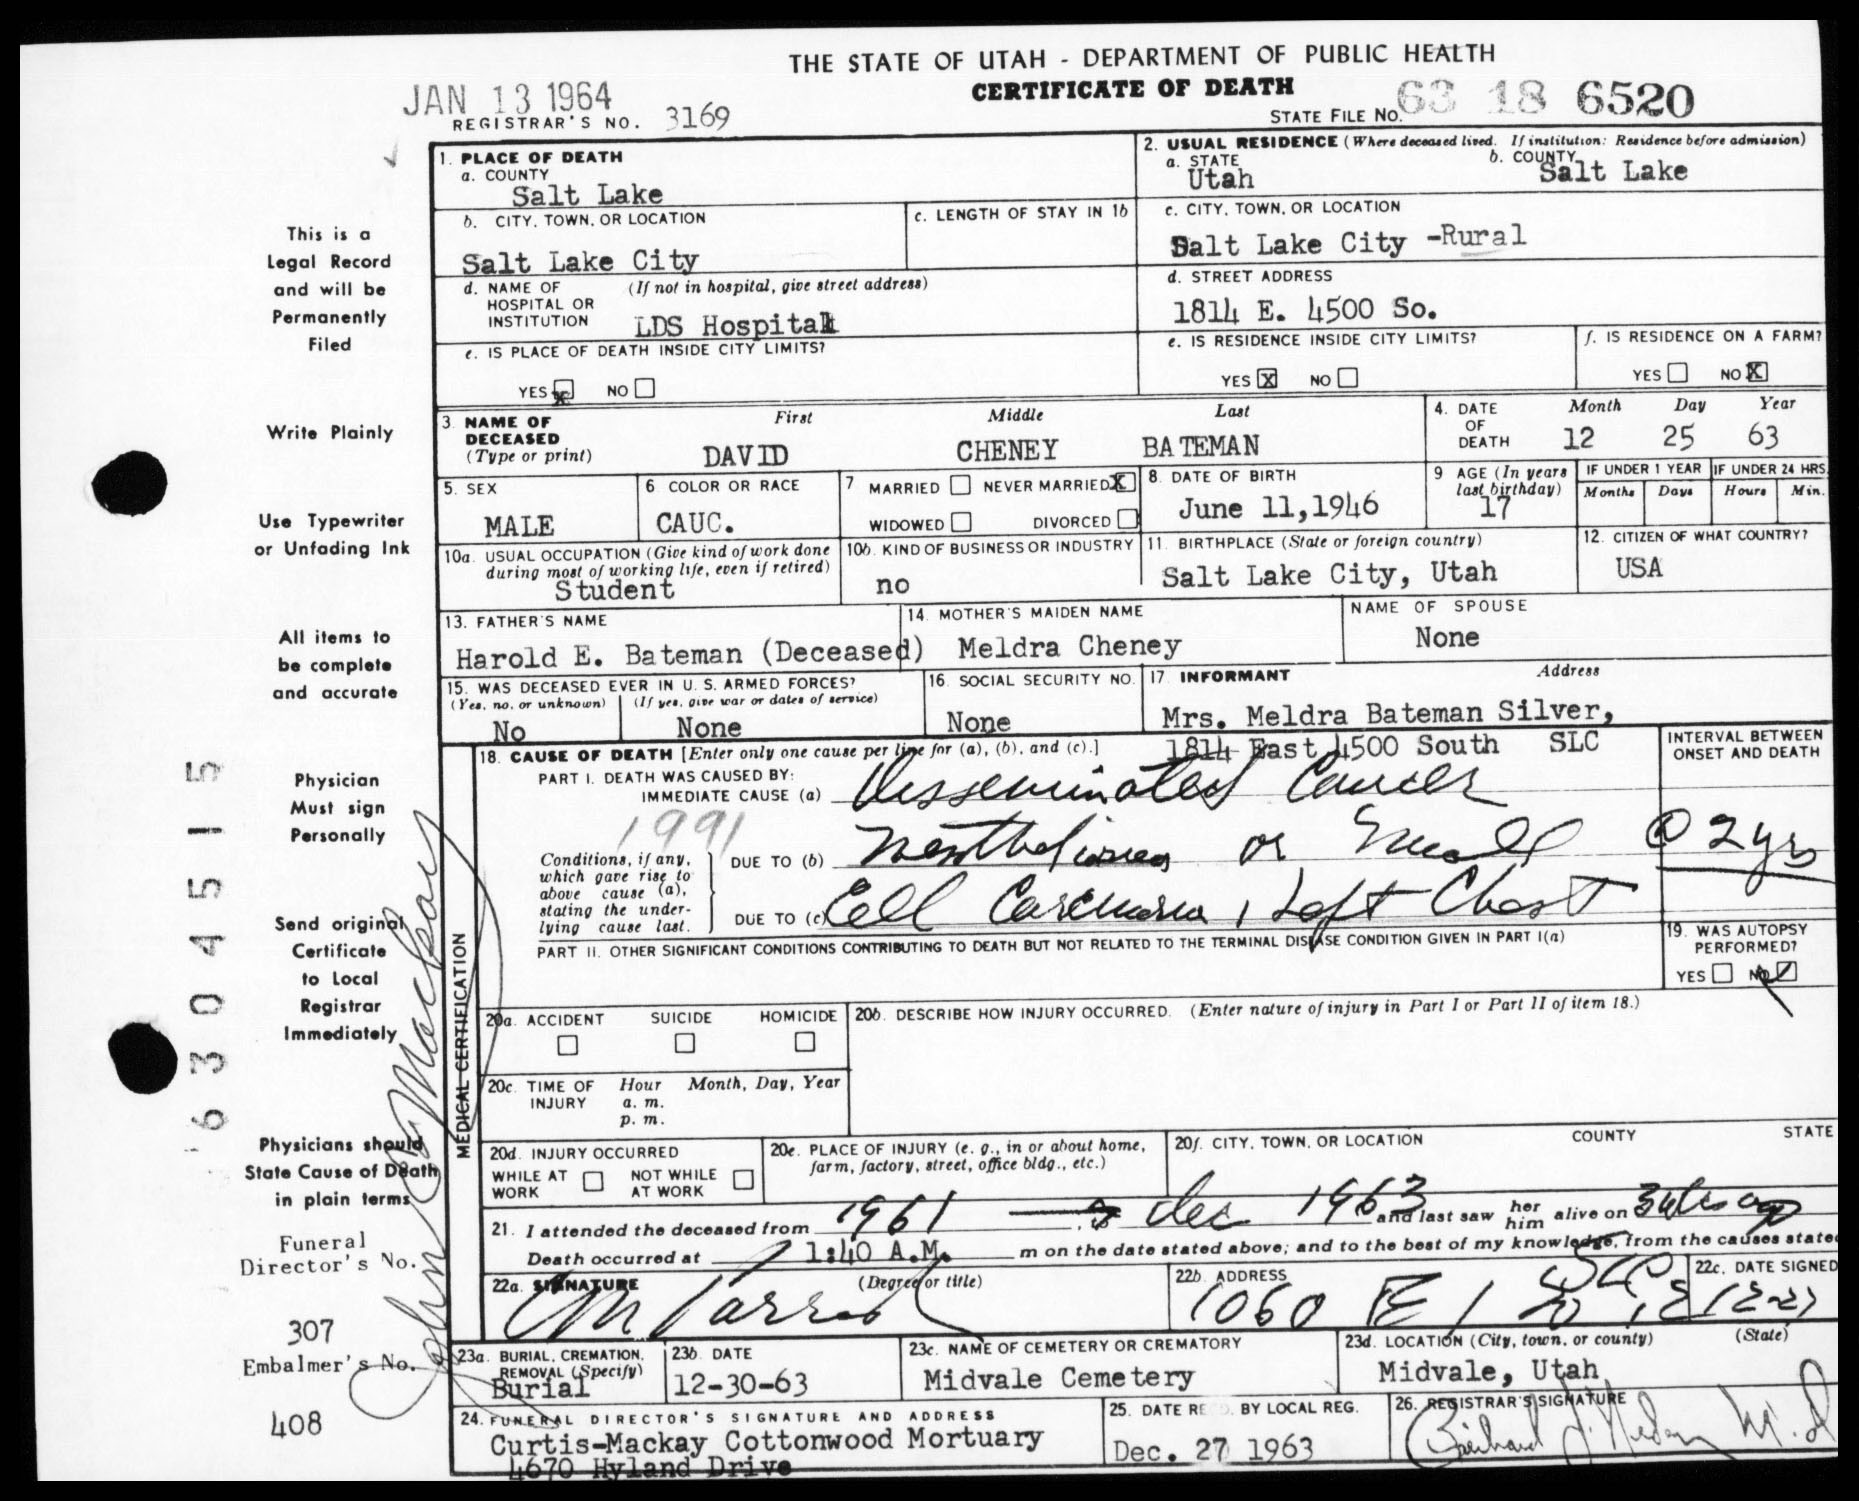 THE STATE OF UTAH - DEPARTMENT OF PUBLIC HEALTH
CERTIFICATE OF DEATH
JAN 13 1964
REGISTRAR'S NO. 3169
STATE FILE NO. 63 18 6520
1. PLACE OF DEATH
a. COUNTY
Salt Lake
2. USUAL RESIDENCE (Where deceased lived. If institution: Residence before admission)
a. STATE
Utah
b. COUNTY
Salt Lake
b. CITY, TOWN, OR LOCATION
Salt Lake City
c. LENGTH OF STAY IN 1b
c. CITY, TOWN, OR LOCATION
Salt Lake City -Rural
d. NAME OF HOSPITAL OR INSTITUTION (If not in hospital, give street address)
LDS Hospital
d. STREET ADDRESS
1814 E. 4500 So.
e. IS PLACE OF DEATH INSIDE CITY LIMITS?
YES X NO
e. IS RESIDENCE INSIDE CITY LIMITS?
YES X NO
f. IS RESIDENCE ON A FARM?
YES NO X
3. NAME OF DECEASED (Type or print)
First Middle Last
DAVID CHENEY BATEMAN
4. DATE OF DEATH
Month Day Year
12 25 63
5. SEX
MALE
6. COLOR OR RACE
CAUC.
7 MARRIED NEVER MARRIED X
WIDOWED DIVORCED
8. DATE OF BIRTH
June 11,1946
9 AGE (In years last birthday)
17
IF UNDER 1 YEAR
Months Days
IF UNDER 24 HRS.
Hours Min.
10a. USUAL OCCUPATION (Give kind of work done during most of working life, even if retired)
Student
10b. KIND OF BUSINESS OR INDUSTRY
no
11. BIRTHPLACE (State or foreign country)
Salt Lake City, Utah
12. CITIZEN OF WHAT COUNTRY?
USA
13. FATHER'S NAME
Harold E. Bateman (Deceased)
14. MOTHER'S MAIDEN NAME
Meldra Cheney
NAME OF SPOUSE
None
15. WAS DECEASED EVER IN U. S. ARMED FORCES?
(Yes, no, or unknown) (If yes, give war or dates of service)
No None
16. SOCIAL SECURITY NO.
None
17 INFORMANT Address
Mrs. Meldra Bateman Silver,
1814 East 4500 South SLC
18. CAUSE OF DEATH [Enter only one cause per line for (a), (b), and (c).]
PART I. DEATH WAS CAUSED BY:
IMMEDIATE CAUSE (a) Disseminated Cancer
1991
Conditions, if any, which gave rise to above cause (a), stating the underlying cause last.
DUE TO (b) Mesothelioma or Small
DUE TO (c) Cell Carcinoma, Left Chest
INTERVAL BETWEEN ONSET AND DEATH
@ 2 yrs
PART II. OTHER SIGNIFICANT CONDITIONS CONTRIBUTING TO DEATH BUT NOT RELATED TO THE TERMINAL DISEASE CONDITION GIVEN IN PART I(a)
19. WAS AUTOPSY PERFORMED?
YES NO
MEDICAL CERTIFICATION
20a. ACCIDENT SUICIDE HOMICIDE
20b. DESCRIBE HOW INJURY OCCURRED. (Enter nature of injury in Part I or Part II of item 18.)
20c. TIME OF INJURY Hour Month, Day, Year
a. m.
p. m.
20d. INJURY OCCURRED
WHILE AT WORK NOT WHILE AT WORK
20e. PLACE OF INJURY (e. g., in or about home, farm, factory, street, office bldg., etc.)
20f. CITY, TOWN, OR LOCATION COUNTY STATE
21. I attended the deceased from 1961 Dec 1963 and last saw her him alive on
Death occurred at 1:40 A.M. m on the date stated above; and to the best of my knowledge, from the causes stated
22a. SIGNATURE (Degree or title)
22b. ADDRESS
1060 E 1 So SLC
22c. DATE SIGNED
23a. BURIAL, CREMATION, REMOVAL (Specify)
Burial
23b. DATE
12-30-63
23c. NAME OF CEMETERY OR CREMATORY
Midvale Cemetery
23d. LOCATION (City, town, or county) (State)
Midvale, Utah
24. FUNERAL DIRECTOR'S SIGNATURE AND ADDRESS
Curtis-Mackay Cottonwood Mortuary
4670 Hyland Drive
25. DATE REC'D. BY LOCAL REG.
Dec. 27 1963
26. REGISTRAR'S SIGNATURE
M.D
This is a
Legal Record
and will be
Permanently
Filed
Write Plainly
Use Typewriter
or Unfading Ink
All items to
be complete
and accurate
Physician
Must sign
Personally
Send original
Certificate
to Local
Registrar
Immediately
Physicians should
State Cause of Death
in plain terms
Funeral
Director's No.
307
Embalmer's No.
408
6304515
John Mackay